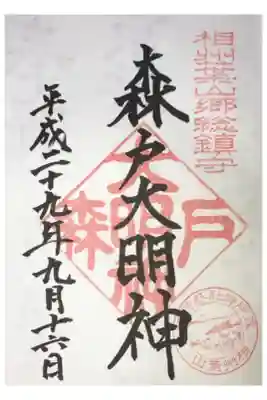 相州葉山郷総鎮守
森戸大明神
平成二十九年九月十六日